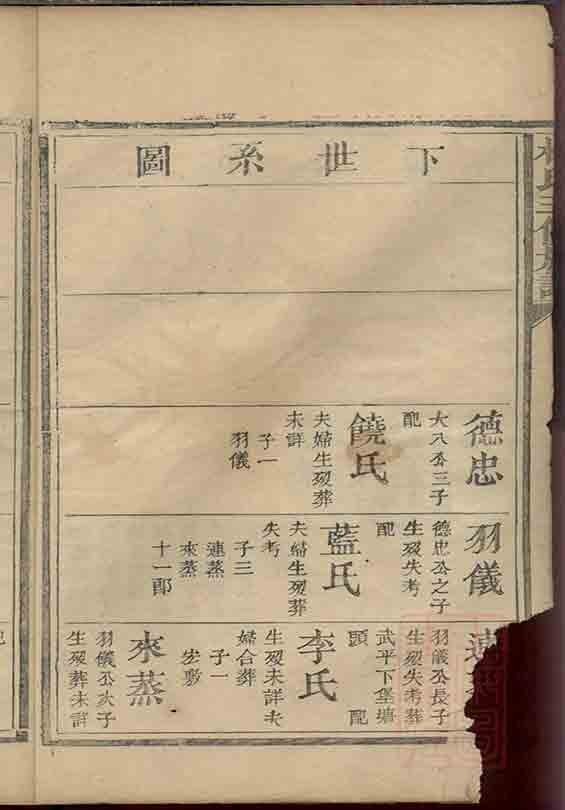 下世系圖
德忠
大八公三子
配
饒氏
夫婦生歿葬
未詳
子一
羽儀
羽儀
德忠公之子
生歿失考
配
藍氏
夫婦生歿葬
失考
子三
連蒸
來蒸
十一郎
羽儀公長子
生歿失考葬
武平下堡塘
頭 配
李氏
生歿未詳夫
婦合葬
子一
來蒸
羽儀公次子
生歿葬未詳
配
氏三修族譜